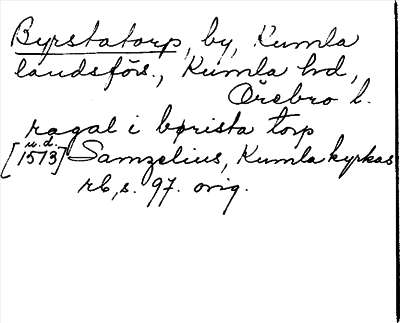 Byrstatorp, by, Kumla
landsförs., Kumla hd,
Örebro l.
ragal i børista torp
[u.d. 1573] Samzelius, Kumla kyrkas
rb, s. 97. orig.